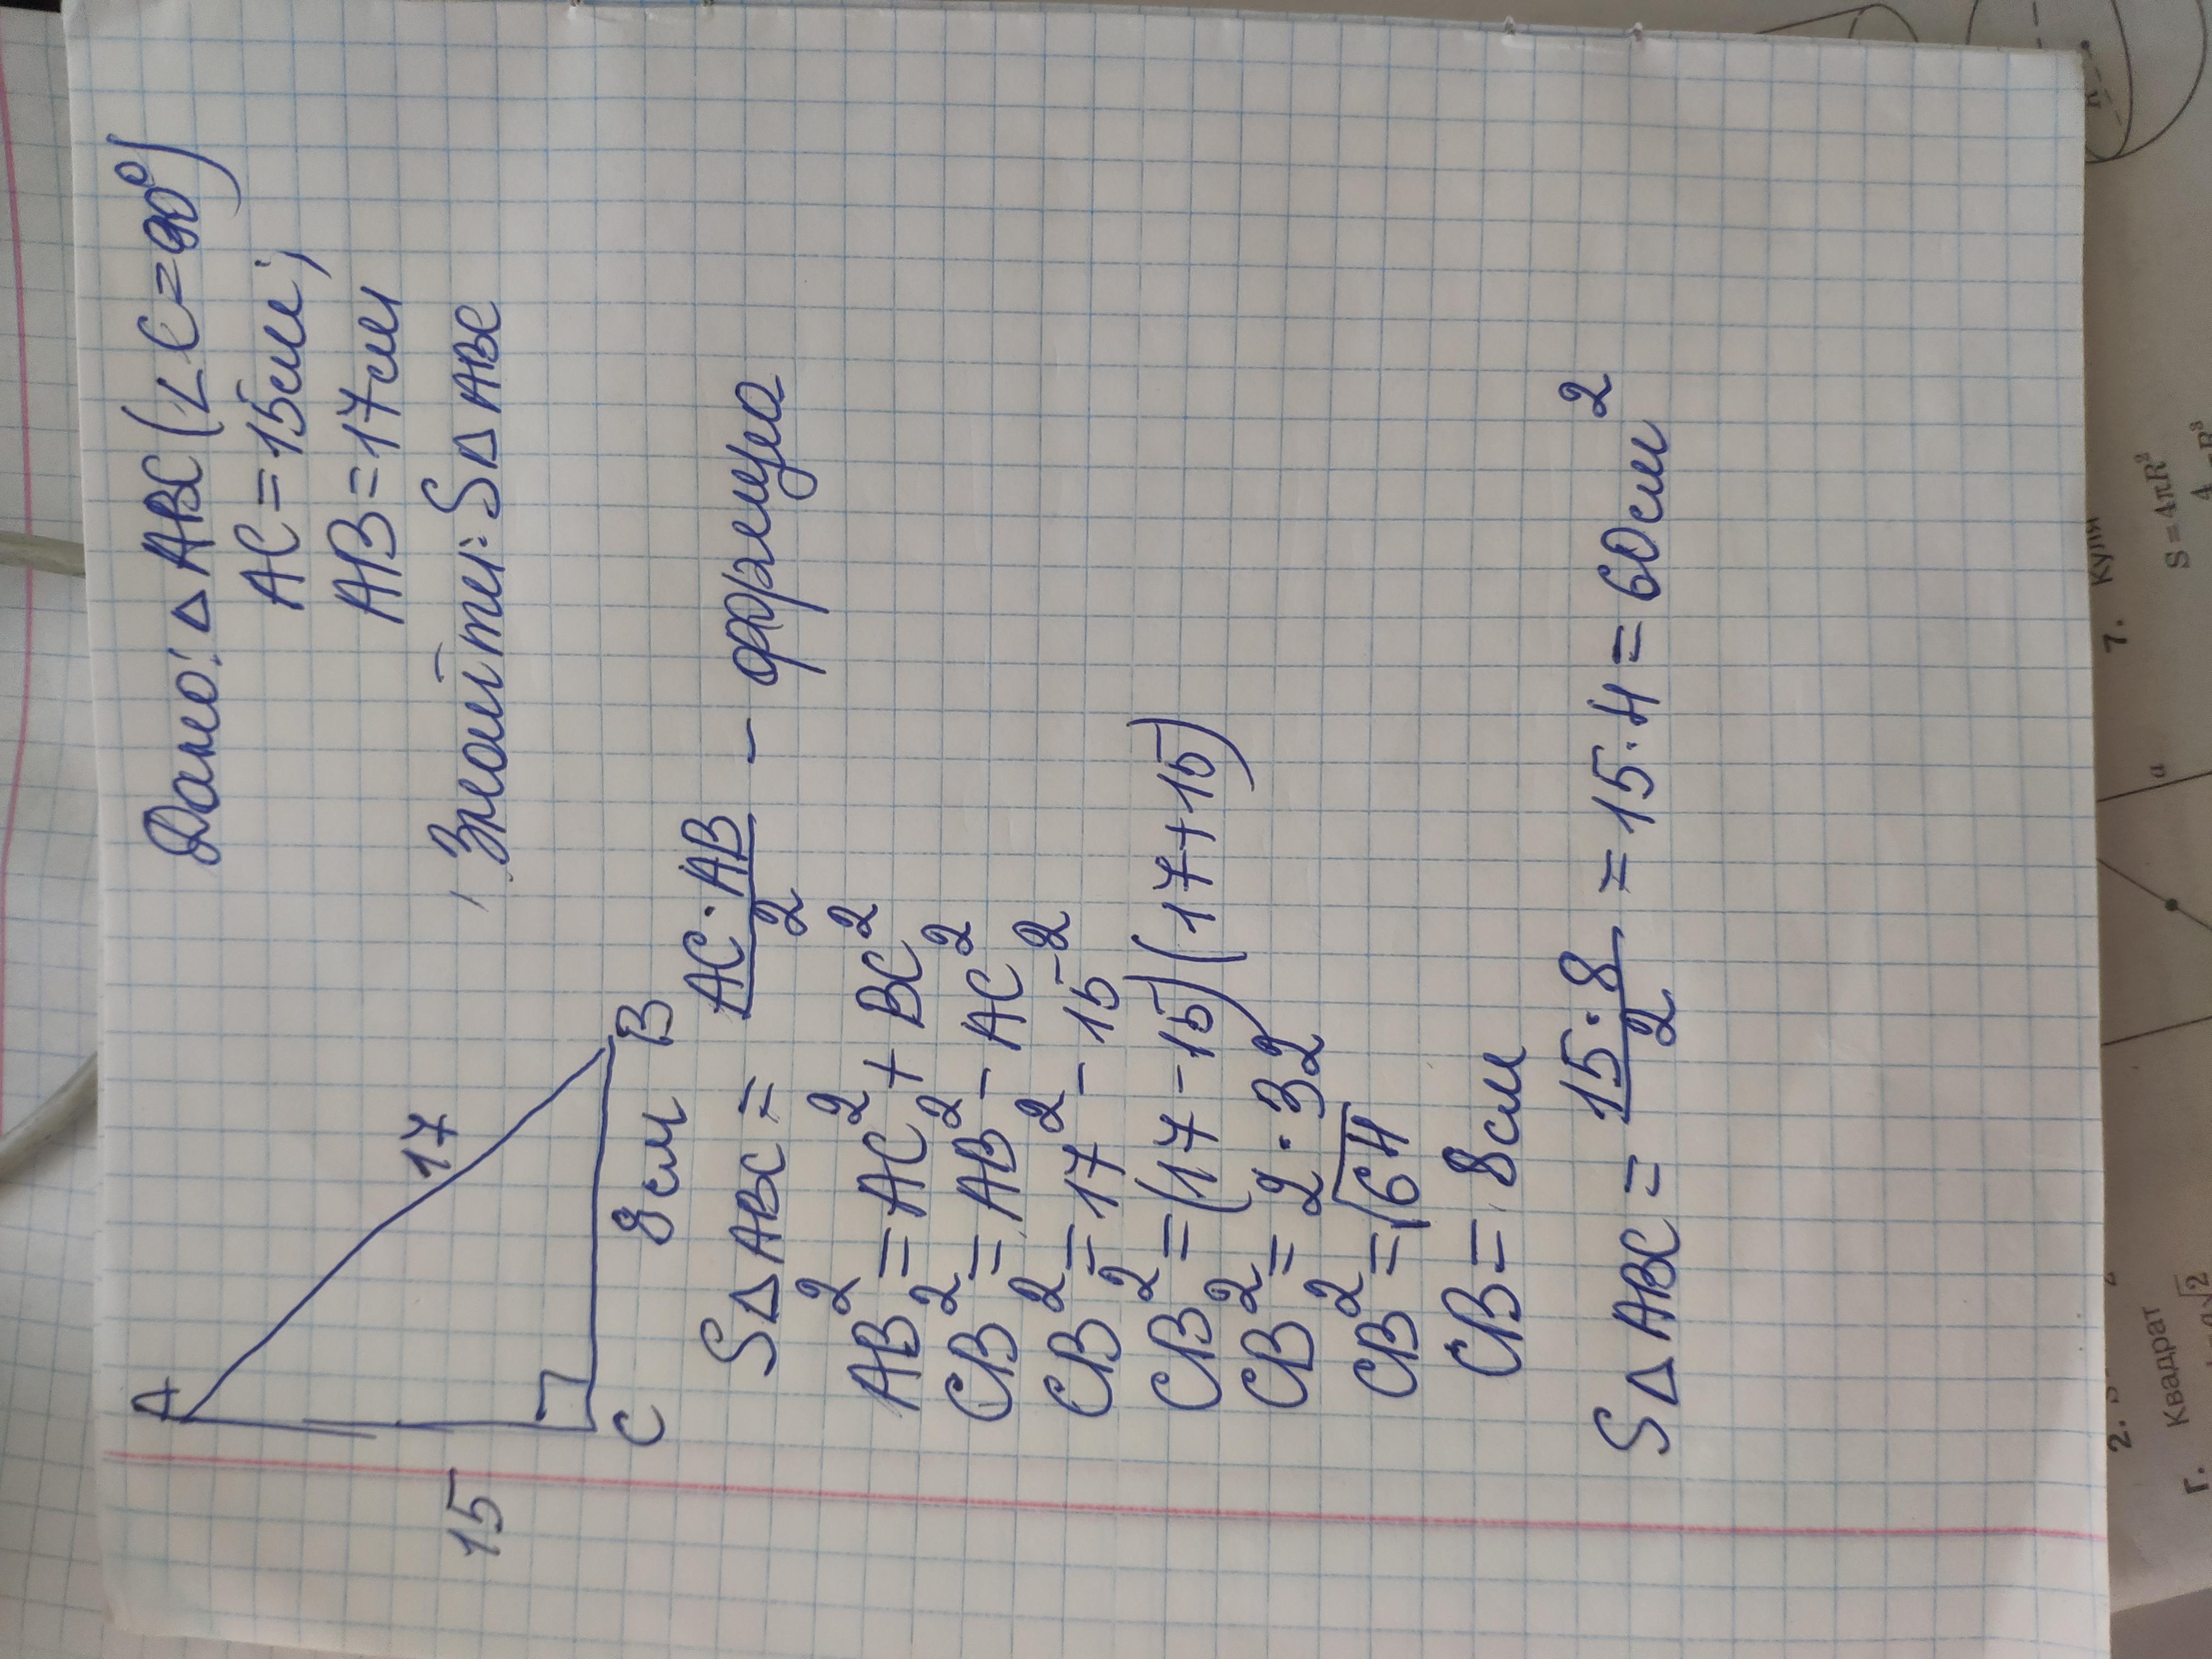 Дано: △ ABC (∠C=90°)
AC=15см;
AB=17см
Знайти: S△ ABC
A
17
15
C
8см
B
S△ ABC = AC·AB/2 –
AB² = AC² + BC²
CB² = AB² – AC²
CB² = 17² – 15²
CB² = (17–15)(17+15)
CB² = 2·32
CB² = √64
CB = 8см
S△ ABC = 15·8/2 = 15·4 = 60см²
2.
Г. Квадрат
7. Куля
S = 4πR²
a